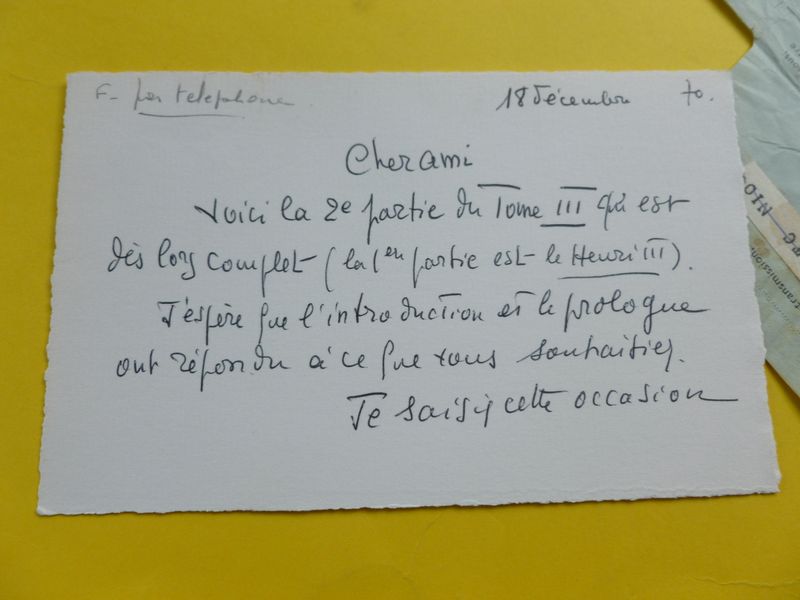 F- par telephone
18 Décembre 70.
Cher ami
Voici la 2e partie du Tome III qui est
dès lors complet (la 1ere partie est le Henri III).
J'espère que l'introduction et le prologue
ont répondu à ce que vous souhaitiez.
Je saisis cette occasion